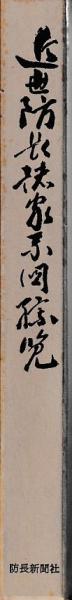 近世防長諸家系図綜覧
防長新聞社